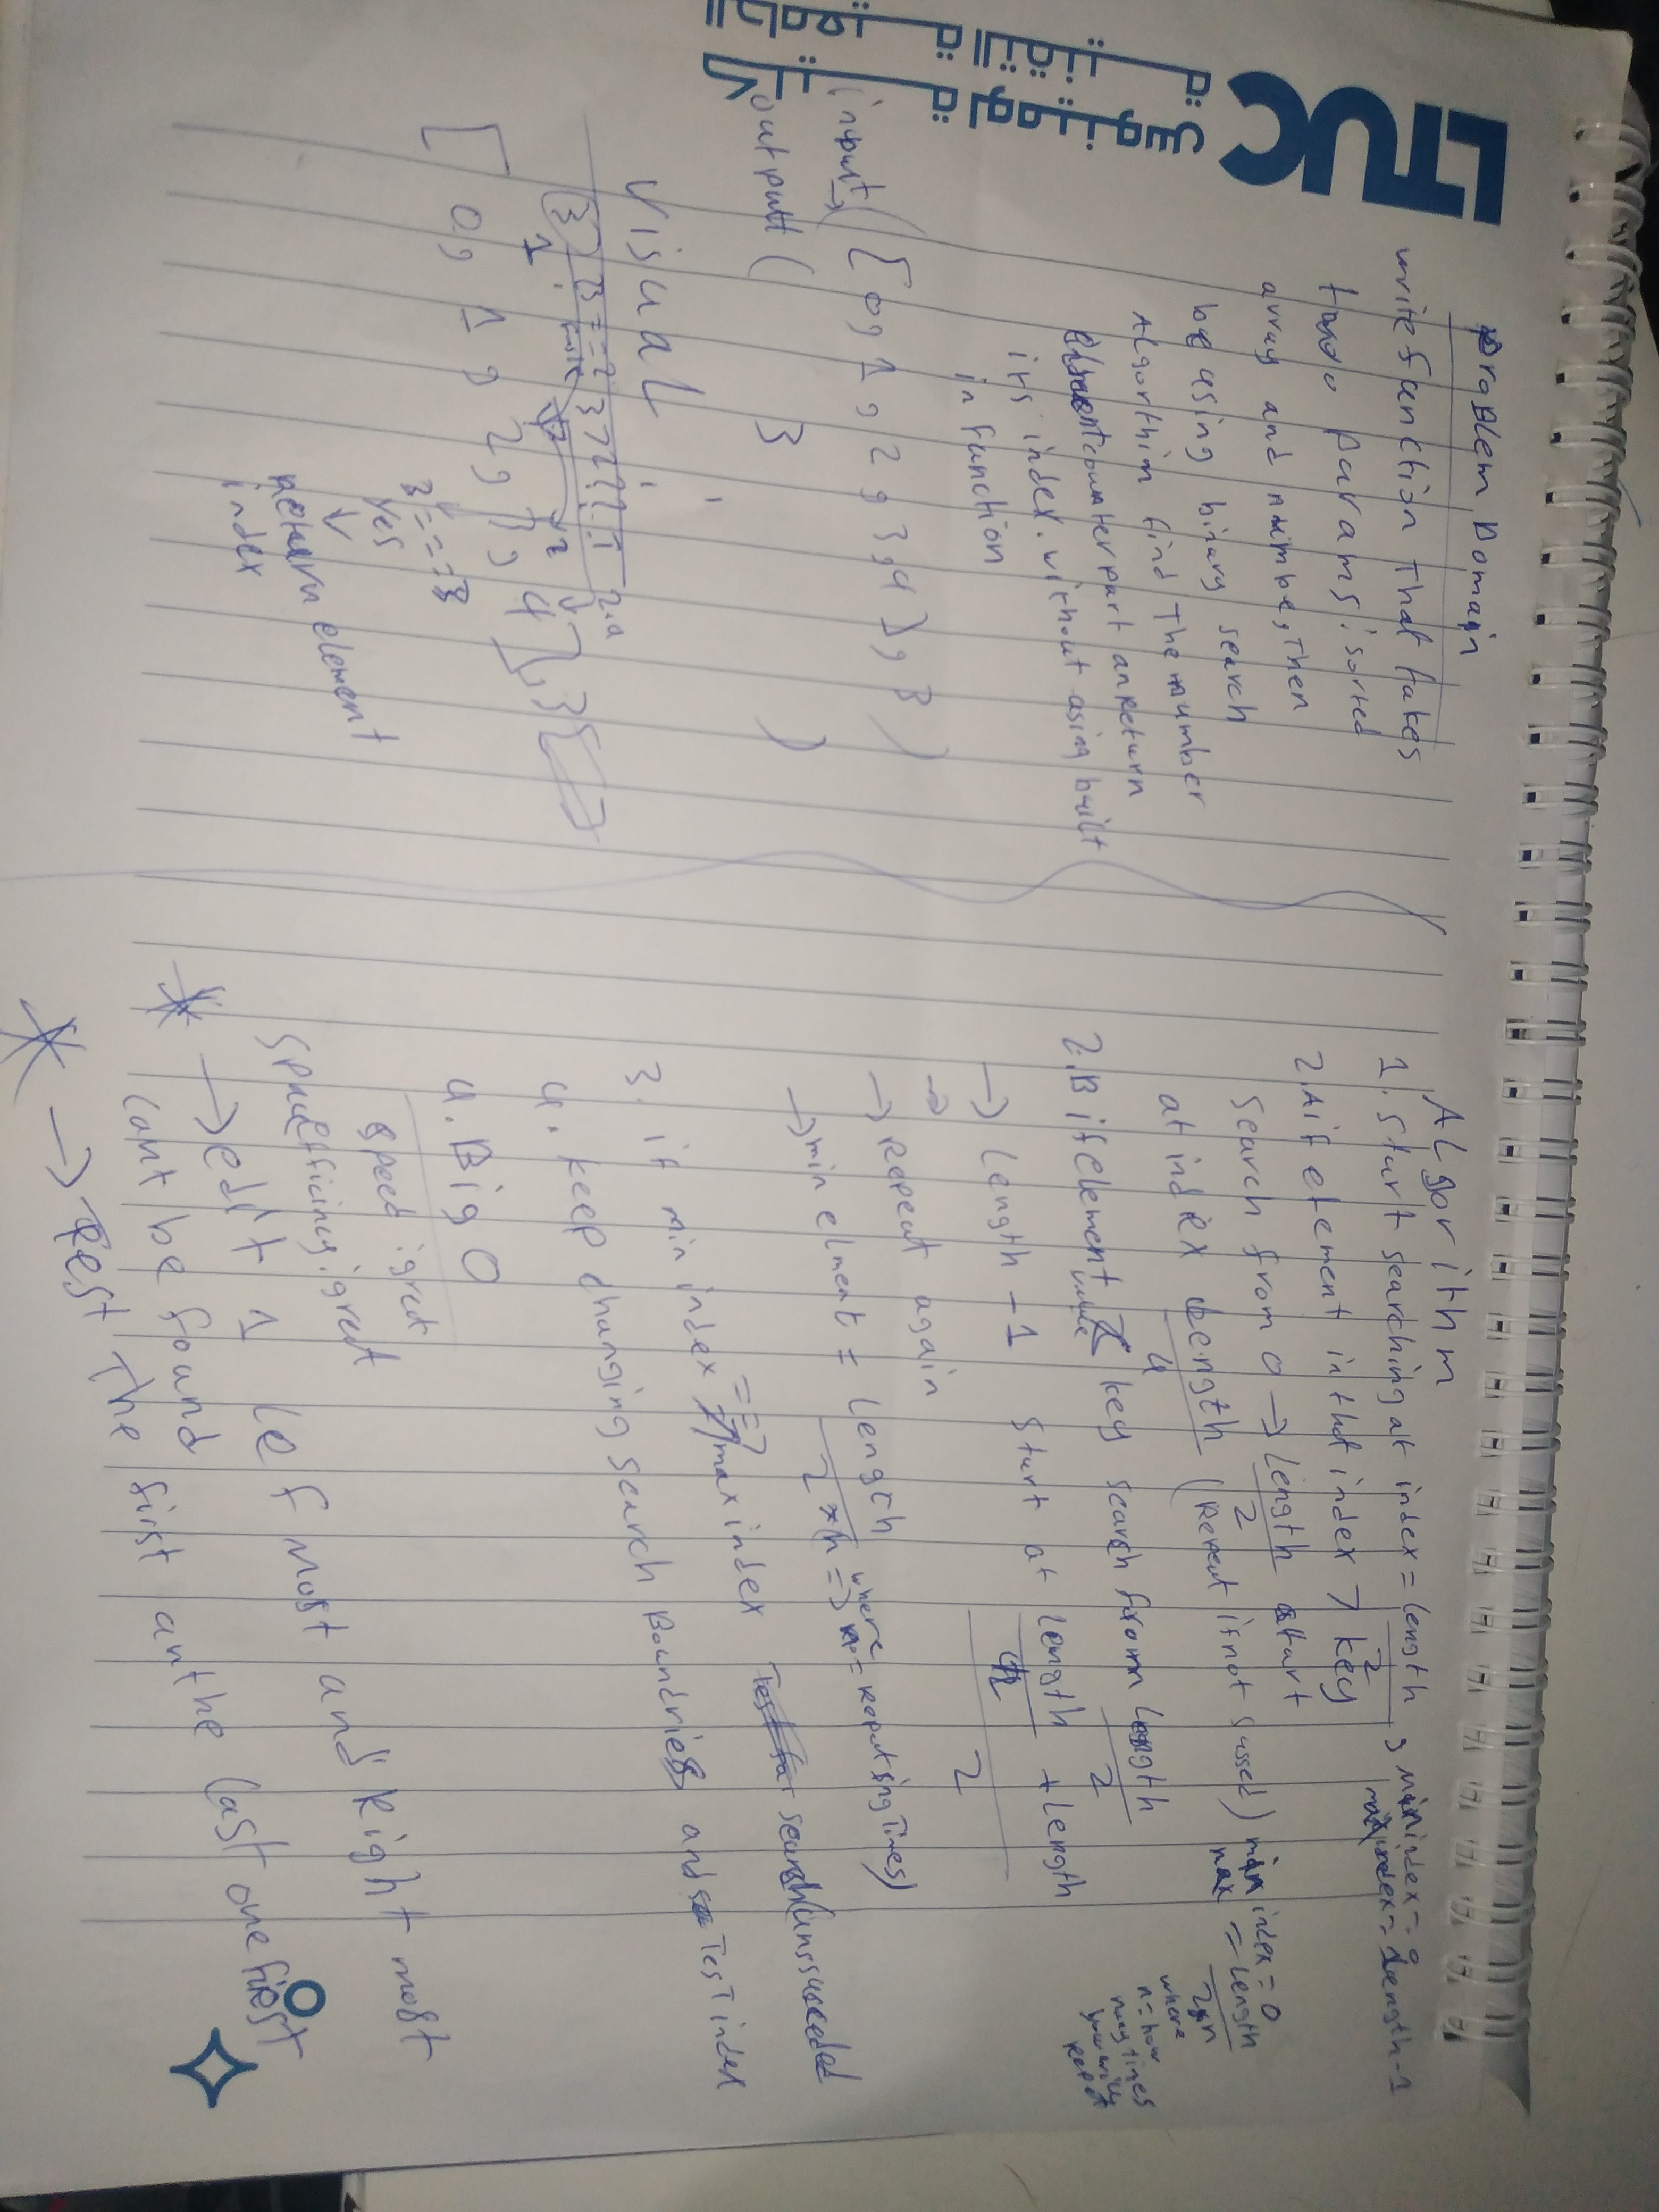 LTUC
كلية لومينوس
الجامعية التقنية
Problem Domain
write function that takes
two params: sorted
array and number, then
by using binary search
Algorthim find the number
counterpart an return
its index. without using built
in function
input → ( [ 0, 1, 2, 3, 4 ], 3 )
output ( 3 )
Visual
3 === 2
3 > 2
2.a
[ 0, 1, 2, 3, 4 ], 3
3 === 3
Yes
return element
index
Algorithm
1. Start searching at index = length / 2, min index = 0
max index = length - 1
2.A if element in that index > key
search from 0 → length / 2 start
at index length / 4 (Repeat if not sussed) min index = 0
max = length / 2*n
where
n = how
may times
you will
repeat
2.B if element value < key search from length / 2
→ length - 1 start at length / 2 + length / 2
→ Repeat again
→ min elment = length / 2 * n => where n = repeating times)
3. if min index === max index search unsuceeded
4. keep changing search Boundries and Test index
4. Big O
speed is great
space efficing is great
* → edit 1 lef most and Right most
cant be found
* → Test the first an the last one first